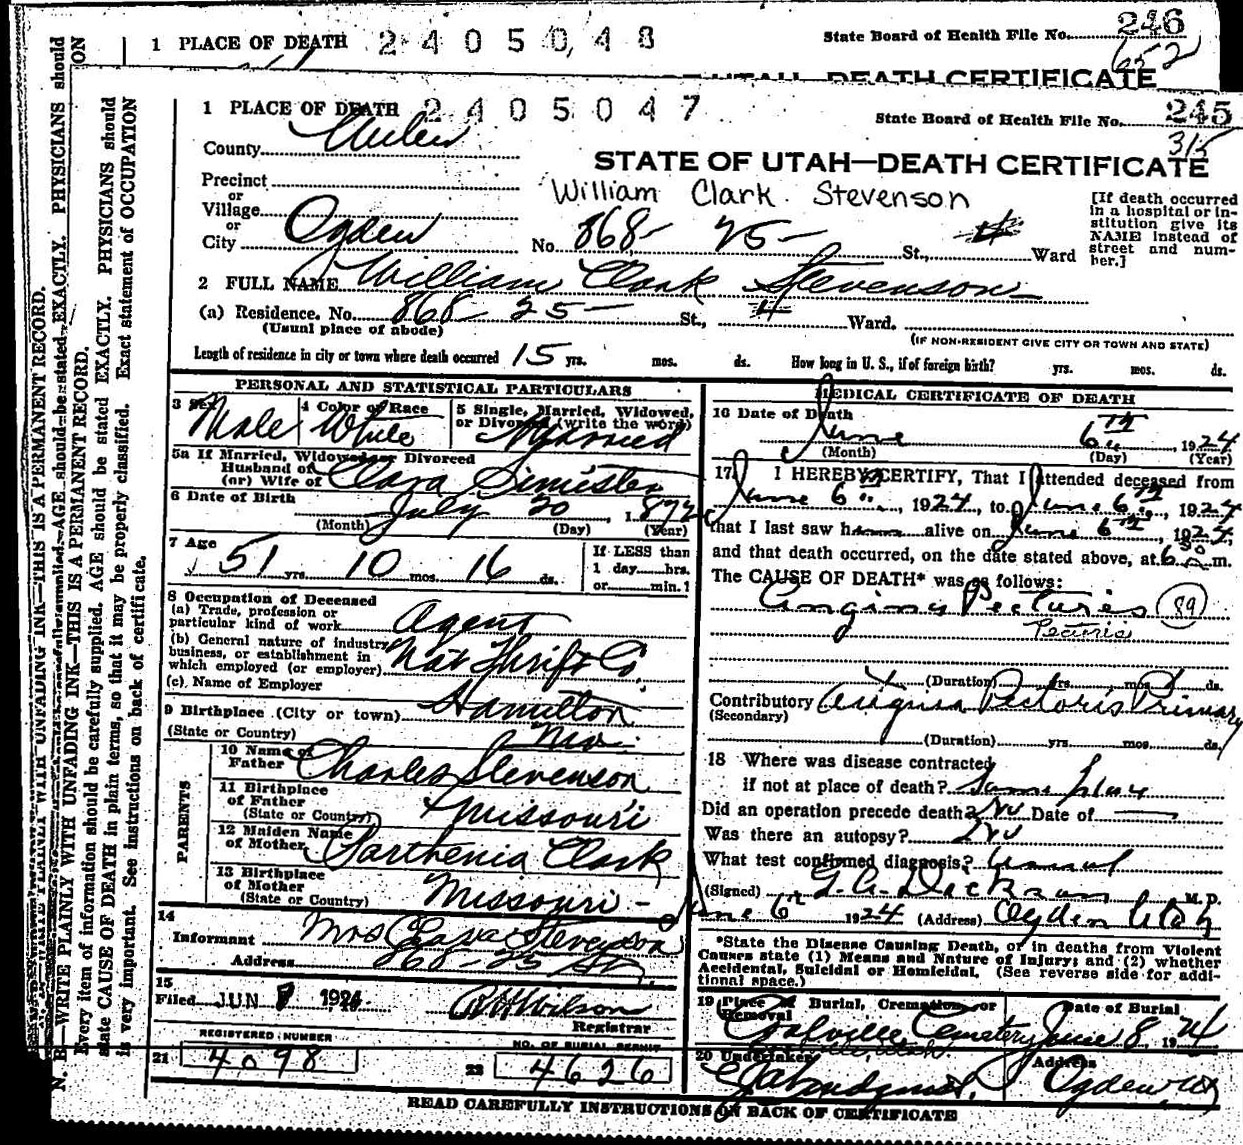 246
1 PLACE OF DEATH 2405048 State Board of Health File No.
652
UTAH—DEATH CERTIFICATE
1 PLACE OF DEATH 2405047 State Board of Health File No. 245
315
County
STATE OF UTAH—DEATH CERTIFICATE
Precinct
or
Village
or
City Ogden
William Clark Stevenson
No. 868- 25- St., 4 Ward
[If death occurred in a hospital or institution give its NAME instead of street and number.]
2 FULL NAME William Clark Stevenson
(a) Residence. No. 868- 25- St., 4 Ward.
(Usual place of abode) (IF NON-RESIDENT GIVE CITY OR TOWN AND STATE)
Length of residence in city or town where death occurred 15 yrs. mos. ds. How long in U. S., if of foreign birth? yrs. mos. ds.
PERSONAL AND STATISTICAL PARTICULARS
3 Sex Male
4 Color or Race White
5 Single, Married, Widowed, or Divorced (write the word) Married
5a If Married, Widowed or Divorced
Husband of
(or) Wife of Clara Simister
6 Date of Birth July 20, 1872
(Month) (Day) (Year)
7 Age 51 yrs. 10 mos. 16 ds.
If LESS than
1 day hrs.
or min.
8 Occupation of Deceased
(a) Trade, profession or
particular kind of work Agent
(b) General nature of industry
business, or establishment in
which employed (or employer) Nat Thrift Co.
(c) Name of Employer
9 Birthplace (City or town) Hamilton
(State or Country) Mo.
PARENTS
10 Name of
Father Charles Stevenson
11 Birthplace
of Father
(State or Country) Missouri
12 Maiden Name
of Mother Parthenia Clark
13 Birthplace
of Mother
(State or Country) Missouri -
14
Informant Mrs Clara Stevenson
Address 868-25 St.
15
Filed JUN 1924
R H Wilson
Registrar
REGISTERED NUMBER
21 4098
NO. OF BURIAL PERMIT
22 4626
MEDICAL CERTIFICATE OF DEATH
16 Date of Death
June 6th 1924
(Month) (Day) (Year)
17 I HEREBY CERTIFY, That I attended deceased from
June 6th, 1924, to June 6th, 1924
that I last saw him alive on June 6th, 1924,
and that death occurred, on the date stated above, at 6 30 a m.
The CAUSE OF DEATH* was as follows:
Anginy Pectures 89
Pectoris
(Duration) yrs. mos. ds.
Contributory Angina Pectoris Primary
(Secondary)
(Duration) yrs. mos. ds.
18 Where was disease contracted
if not at place of death? Same place
Did an operation precede death? No Date of —
Was there an autopsy? No
What test confirmed diagnosis?
(Signed) G. A. Dickson M.D.
June 6th 1924 (Address) Ogden Utah
*State the Disease Causing Death, or in deaths from Violent Causes state (1) Means and Nature of Injury; and (2) whether Accidental, Suicidal or Homicidal. (See reverse side for additional space.)
19 Place of Burial, Cremation or Removal
Coalville Cemetery
Date of Burial
June 8 1924
20 Undertaker
Address
Ogden, Ut
READ CAREFULLY INSTRUCTIONS ON BACK OF CERTIFICATE
N. B.—WRITE PLAINLY WITH UNFADING INK—THIS IS A PERMANENT RECORD.
Every item of information should be carefully supplied. AGE should be stated EXACTLY. PHYSICIANS should
state CAUSE OF DEATH in plain terms, so that it may be properly classified. Exact statement of OCCUPATION
is very important. See instructions on back of certificate.